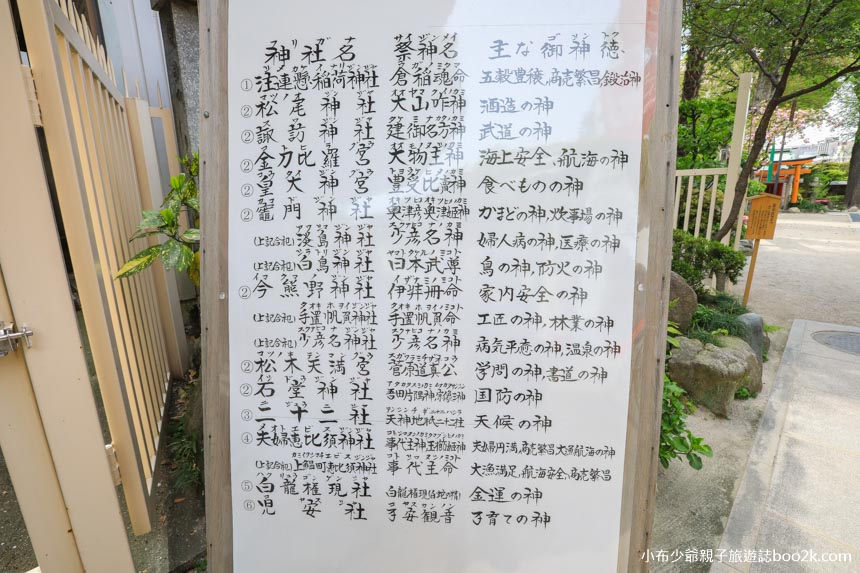 神社名 祭神名 主な御神徳
①注連懸稲荷神社 倉稲魂命 五穀豊穣、商売繁昌、鍛冶神
②松尾神社 大山咋神 酒造の神
②諏訪神社 建御名方神 武道の神
②金刀比羅宮 大物主神 海上安全、航海の神
②皇大神宮 豊受比賣神 食べものの神
②竈門神社 奥津彦奥津姫神 かまどの神、炊事場の神
(上記合祀)淡島神社 少彦名神 婦人病の神、医療の神
(上記合祀)白鳥神社 日本武尊 鳥の神、防火の神
②今熊野神社 伊弉冊命 家内安全の神
(上記合祀)手置帆負神社 手置帆負命 工匠の神、林業の神
(上記合祀)少彦名神社 少彦名神 病気平癒の神、温泉の神
②松木天満宮 菅原道真公 学問の神、書道の神
②石堂神社 国防の神
③二十二社 天神地祇二十二社 天候の神
④夫婦恵比須神社 事代主神、玉櫛姫神 夫婦円満、商売繁昌、大漁航海の神
(上記合祀)上鰮町恵比須神社 事代主命 大漁満足、航海安全、商売繁昌
⑤白龍権現社 金運の神
⑥児安社 子安観音 子育ての神
小布少爺親子旅遊誌boo2k.com